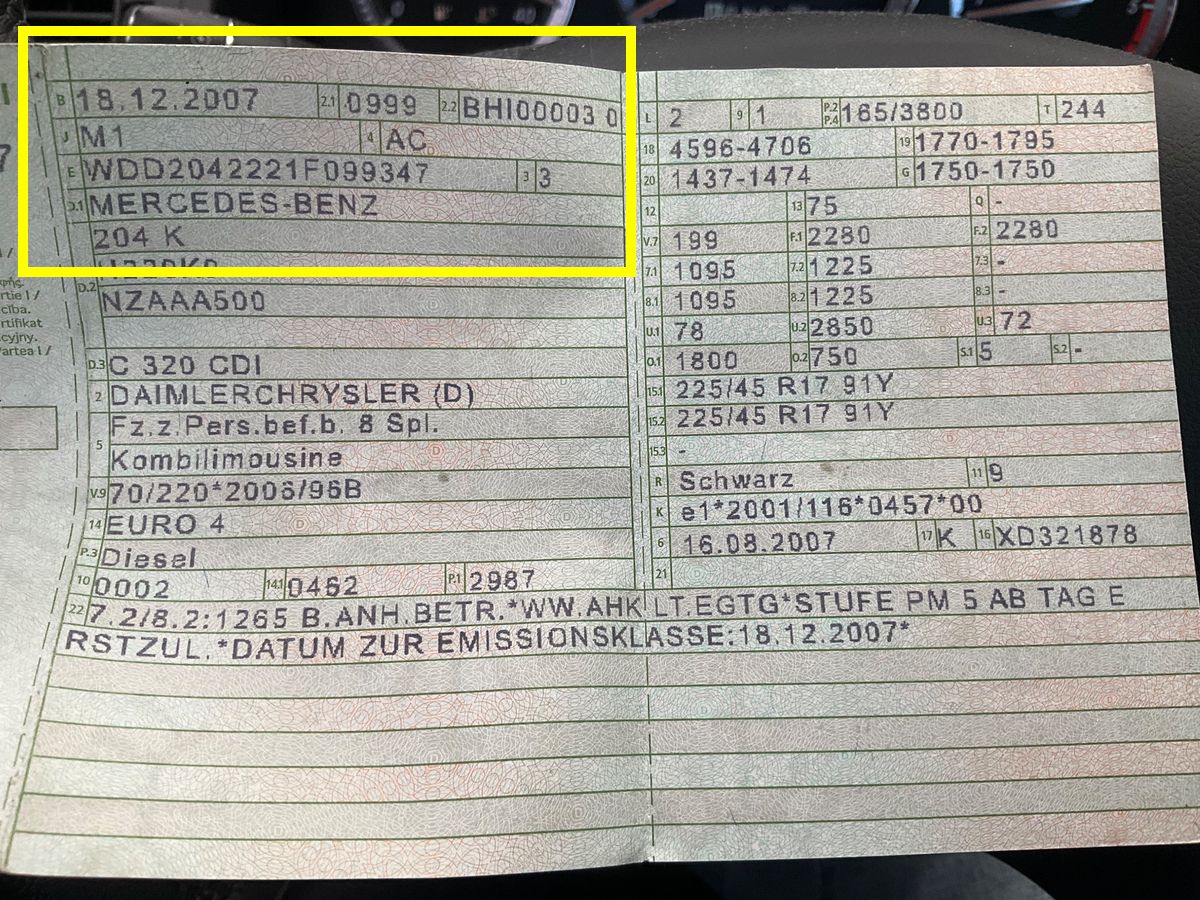 B 18.12.2007 2.1 0999 2.2 BHI00003 0
J M1 4 AC
E WDD2042221F099347 3 3
D.1 MERCEDES-BENZ
204 K
D.2
NZAAA500
D.3 C 320 CDI
2 DAIMLERCHRYSLER (D)
Fz.z.Pers.bef.b. 8 Spl.
5
Kombilimousine
V.9 70/220*2006/96B
14 EURO 4
P.3 Diesel
10 0002 14.1 0462 P.1 2987
L 2 9 1 P.2 P.4 165/3800 T 244
18 4596-4706 19 1770-1795
20 1437-1474 G 1750-1750
12 13 75 Q -
V.7 199 F.1 2280 F.2 2280
7.1 1095 7.2 1225 7.3 -
8.1 1095 8.2 1225 8.3 -
U.1 78 U.2 2850 U.3 72
O.1 1800 O.2 750 S.1 5 S.2 -
15.1 225/45 R17 91Y
15.2 225/45 R17 91Y
15.3 -
R Schwarz 11 9
K e1*2001/116*0457*00
6 16.08.2007 17 K 16 XD321878
21
22 7.2/8.2:1265 B.ANH.BETR.*WW.AHK LT.EGTG*STUFE PM 5 AB TAG E
RSTZUL.*DATUM ZUR EMISSIONSKLASSE:18.12.2007*